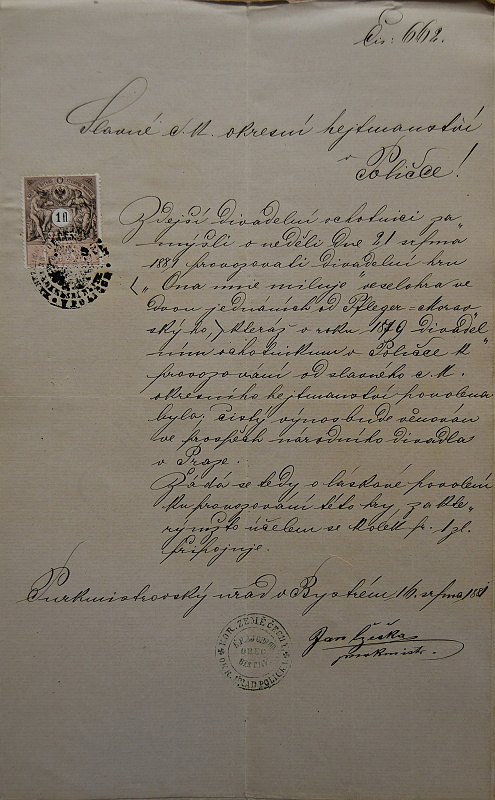 Čís: 662.
Slavné c. k. okresní hejtmanství
v
Poličce!
1 fl
Zdejší divadelní ochotníci za„
mýšlí v neděli dne 21 srpna
1881 provozovati divadelní hru
„Ona mne miluje, veselohra ve
dvou jednáních od Pfleger-Morav„
ského," kteráž v roku 1879 divadel„
ním ochotníkům v Poličce k
provozování od slavného c. k.
okresního hejtmanství povolena
byla. Čistý výnos bude věnován
ve prospěch národního divadla
v Praze.
Žádá se tedy o láskavé povolení
ku provozování této hry, za kte„
rýmžto účelem se kolek pr. 1 zl.
připojuje.
Purkmistrovský úřad v Bystrém 16. srpna 1881
Jan
purkmistr.
KRÁL. ZEMĚ ČECHY
OBEC